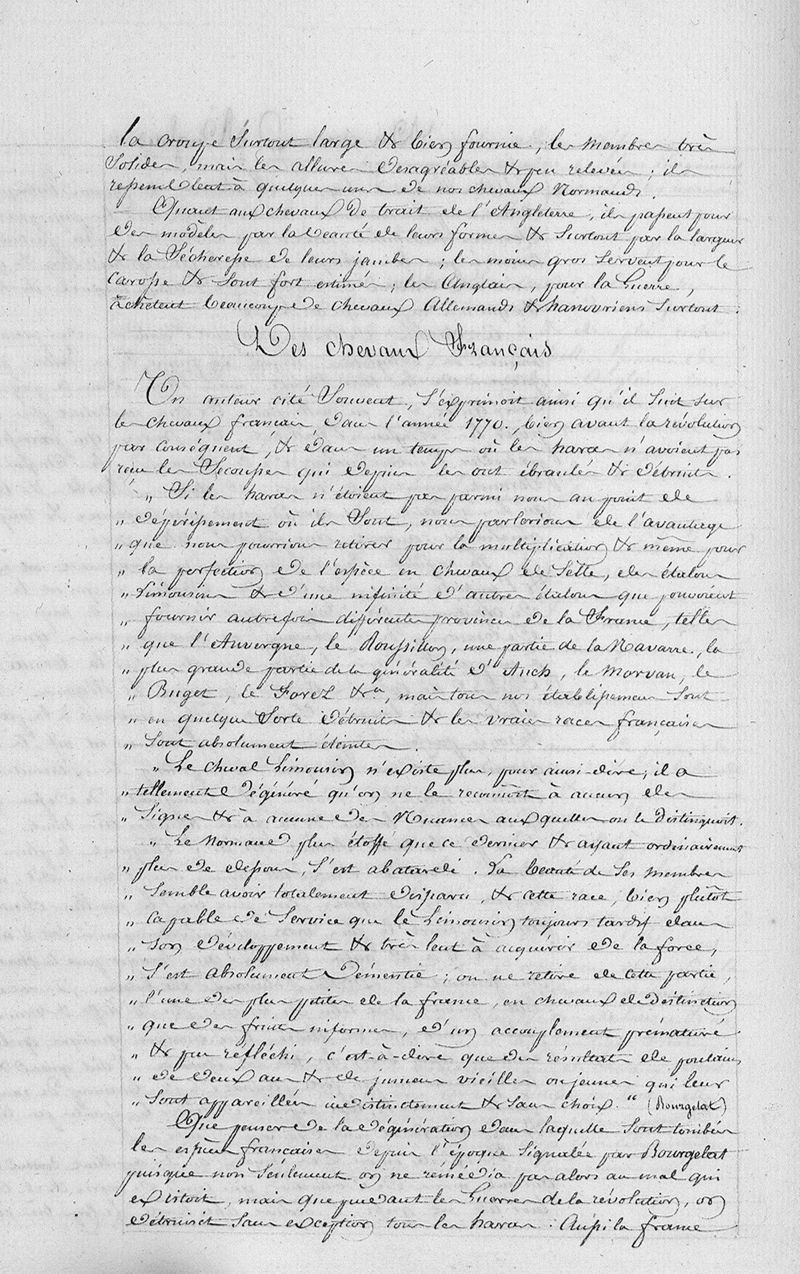 la croupe surtout large & bien fournie, les membres très
solides, mais les allures désagréables & peu relevées ; ils
ressemblent à quelques uns de nos chevaux Normands.
Quant aux chevaux de trait de l'Angleterre, ils passent pour
des modèles par la beauté de leurs formes & surtout par la largeur
& la sécheresse de leurs jambes ; les moins gros servent pour le
carosse & sont fort estimés ; les Anglais, pour la Guerre,
achètent beaucoup de chevaux Allemands & hanovriens surtout.
Des chevaux Français
Un auteur cité souvent, s'exprimoit ainsi qu'il suit sur
les chevaux français dans l'année 1770, bien avant la révolution
par conséquent, & dans un temps où les haras n'avoient pas
reçu les secousses qui depuis les ont ébranlés & détruits.
" Si les haras n'étoient pas parmi nous au point de
" dépérissement où ils sont, nous parlerions de l'avantage
" que nous pourrions retirer pour la multiplication & même pour
" la perfection de l'espèce en chevaux de selle, des étalons
" Limousins & d'une infinité d'autres étalons que pouvoient
" fournir autrefois différentes provinces de la France, telles
" que l'Auvergne, le Roussillon, une partie de la Navarre, la
" plus grande partie de la généralité d'Auch, le Morvan, le
" Buget, le Forez &a, mais tous nos établissemens sont
" en quelque sorte détruits & les vraies races françaises
" sont absolument éteintes.
" Le cheval Limousin n'existe plus, pour ainsi-dire ; il a
" tellement dégénéré qu'on ne le reconnoît à aucun des
" signes & à aucune des Nuances auxquelles on le distinguoit.
" Le Normand plus étoffé que ce dernier & ayant ordinairement
" plus de dessous, s'est abatardi. La beauté de ses membres
" semble avoir totalement disparu, & cette race, bien plutôt
" capable de service que le Limousin toujours tardif dans
" son développement & très lent à acquérir de la force,
" s'est absolument démentie ; on ne retire de cette partie,
" l'une des plus petites de la france, en chevaux de distinction
" que des fruits informes, d'un accouplement prématuré
" & peu réfléchi, c'est-à-dire que des résultats de poulains
" de deux ans & de jumens vieilles ou jeunes qui leur
" sont appareillées indistinctement & sans choix. " (Bourgelat)
Que penser de la dégénération dans laquelle sont tombées
les espèces françaises depuis l'époque signalée par Bourgelat
puisque non seulement on ne rémédia pas alors au mal qui
existoit, mais que pendant les Guerres de la révolution, on
détruisit sans exception tous les haras. Aussi la france